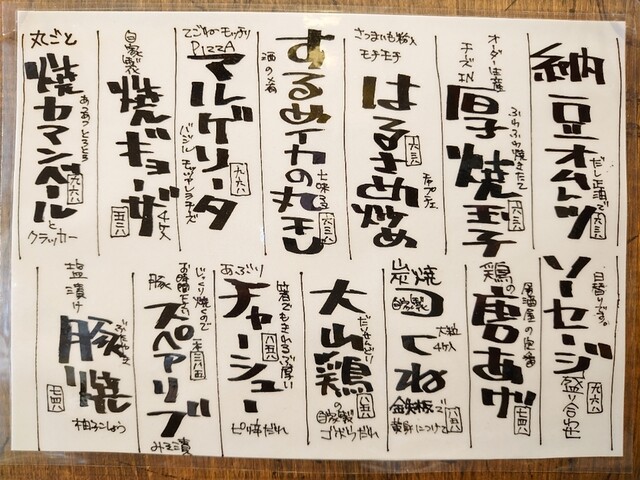 納豆オムレツ
だし正油で
六三八
オーダー生産
チーズIN
厚焼玉子
ふわふわ焼きたて
六三八
さつまいも粉入
モチモチ
はるさめ炒め
チャプチェ
六三八
酒の肴
するめイカの丸干し
七味マヨ
六三八
てごねモッチリ
PIZZA
マルゲリータ
バジル モッツァレラチーズ
九六八
自家製
焼ギョーザ
4ケ入
五三八
丸ごと
焼カマンベール
あつあつとろとろ
とクラッカー
六六八
日替りです。
ソーセージ
盛り合わせ
九六八
居酒屋の定番
鶏唐あげ
七四八
炭焼の
自家製
つくね
大粒
4ケ入
金鉄板で
黄身につけて
八五八
大山鶏
だいせんどり
の自家製
ゴボウだれ
八五八
あぶり
チャーシュー
箸でもきれるぶ厚い
ピ辛だれ
八五八
じっくり焼くので
お時間下さい
豚スペアリブ
一本三八五
みそ漬
塩漬け
豚焼
ぶたやき
柚子こしょう
七四八